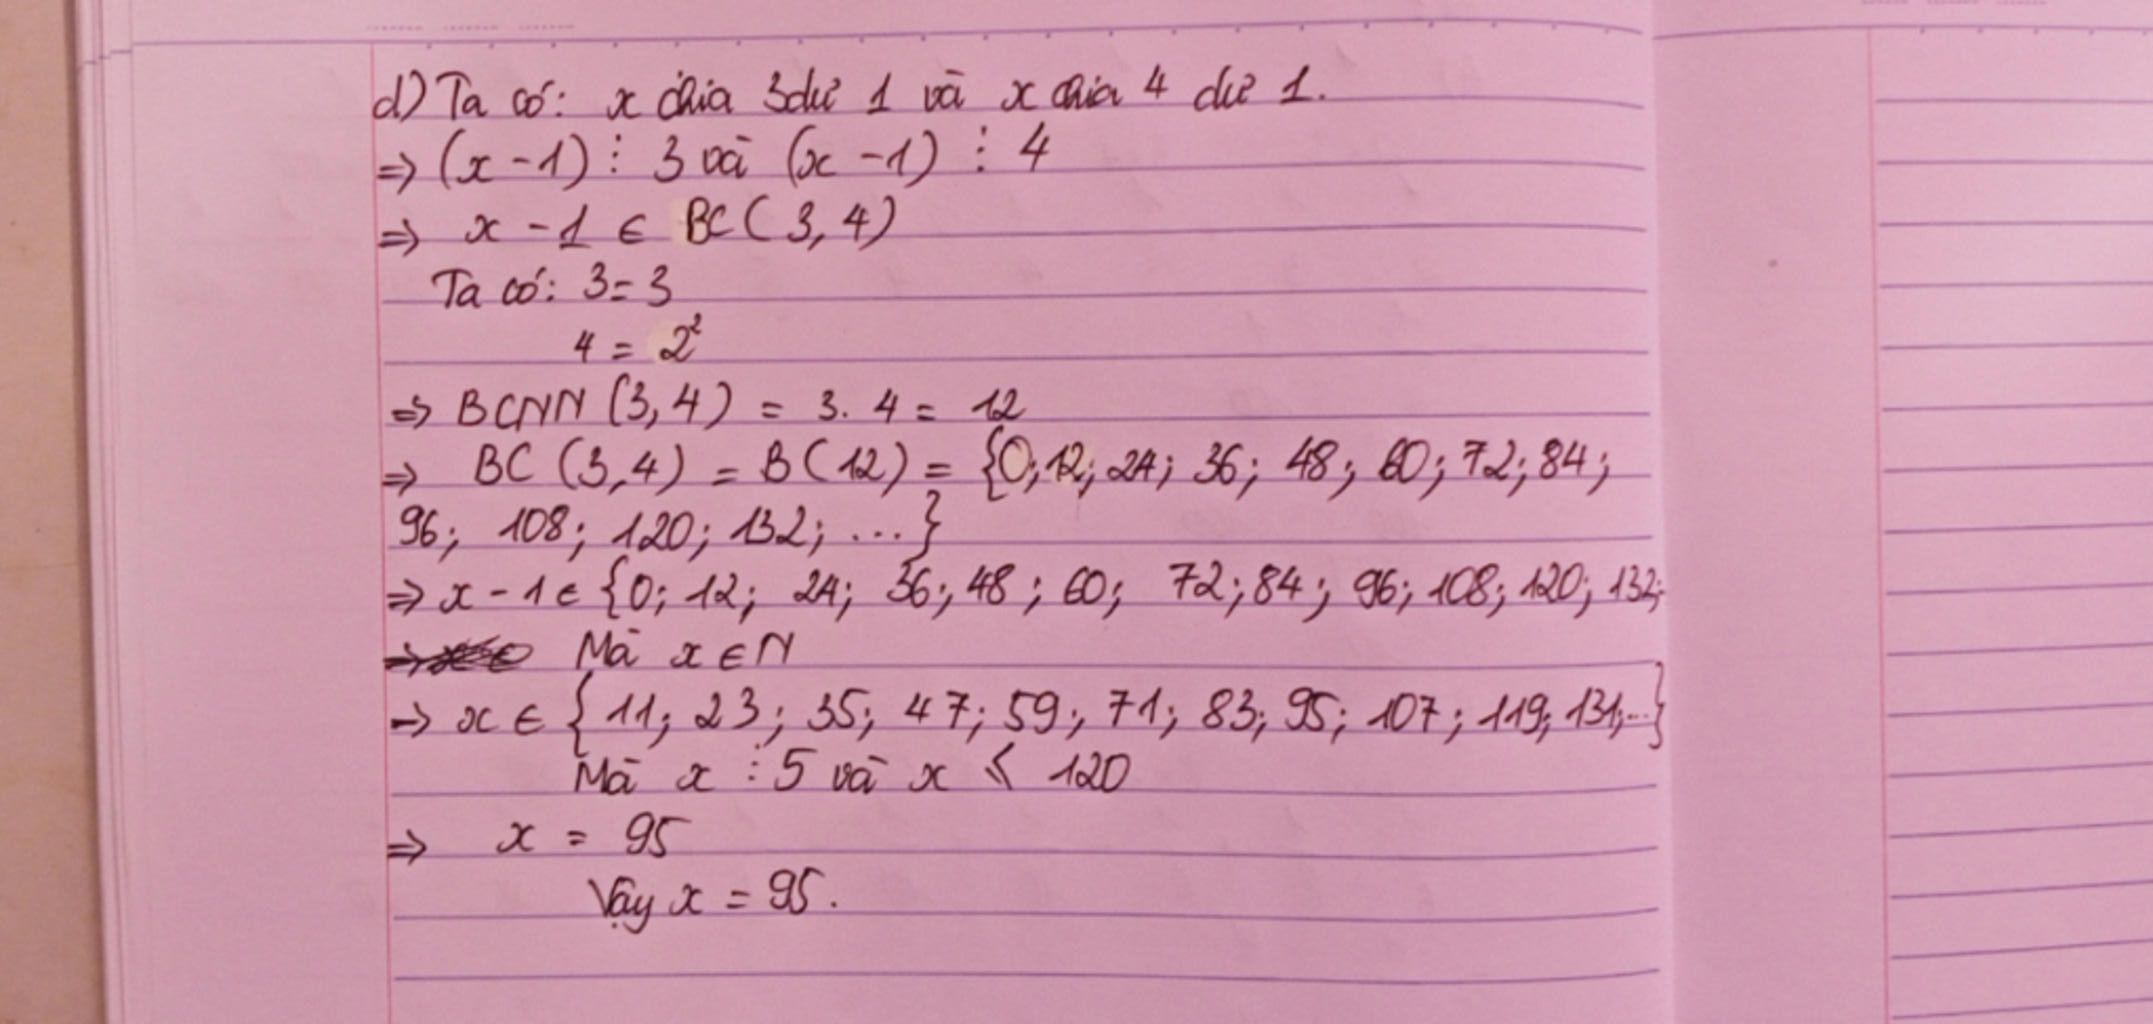 d) Ta có: x chia 3 dư 1 và x chia 4 dư 1.
=> (x - 1) ⋮ 3 và (x - 1) ⋮ 4
=> x - 1 ∈ BC(3,4)
Ta có: 3 = 3
4 = 2²
=> BCNN (3,4) = 3. 4 = 12
=> BC (3,4) = B(12) = {0; 12; 24; 36; 48; 60; 72; 84;
96; 108; 120; 132; ...}
=> x - 1 ∈ {0; 12; 24; 36; 48; 60; 72; 84; 96; 108; 120; 132;
Mà x ∈ N
=> x ∈ {11; 23; 35; 47; 59; 71; 83; 95; 107; 119; 131;...}
Mà x ⋮ 5 và x ≤ 120
=> x = 95
Vậy x = 95.